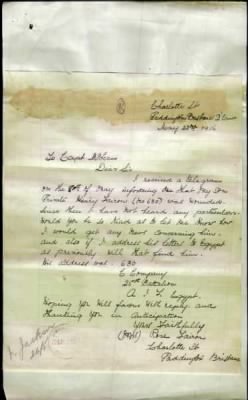 Charlotte St
Paddington Brisbane
May 22nd 1916
To Capt McLean
Dear Sir
I received a telegram
on the of May informing me that my son
Private Henry (No 630) was wounded.
Since then I have not heard any particulars.
Would you be so kind as to let me know how
I would get any news concerning him.
and also if I address his letters to Egypt
as previously will that find him.
His address was. 630
C Company
25th Battalion
A. I. F. Egypt.
Hoping you will favour with reply and
thanking you in anticipation
Yours Faithfully
Rose
Charlotte St
Paddington Brisbane